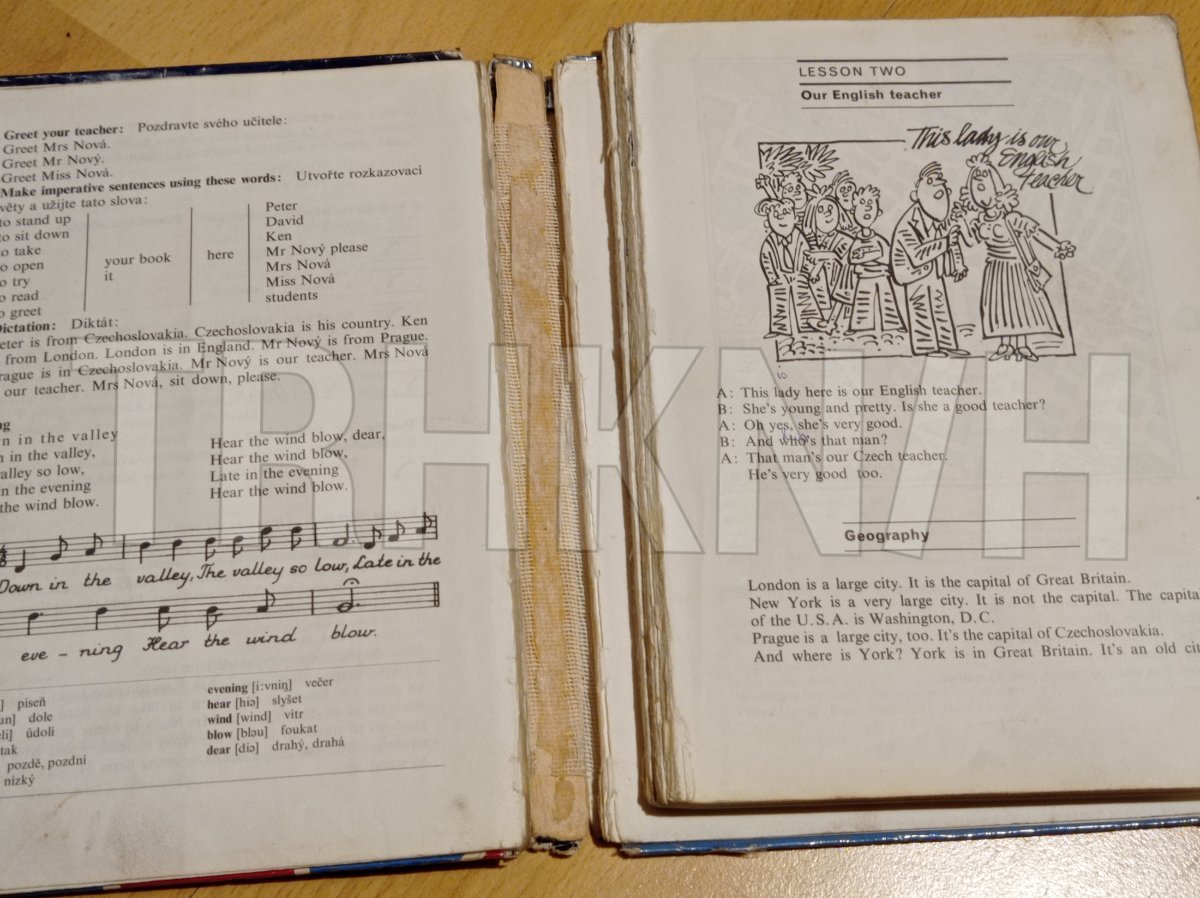 Greet your teacher: Pozdravte svého učitele:
Greet Mrs Nová.
Greet Mr Nový.
Greet Miss Nová.
Make imperative sentences using these words: Utvořte rozkazovací
věty a užijte tato slova:
to stand up
to sit down
to take
to open
to try
to read
to greet
your book
it
here
Peter
David
Ken
Mr Nový please
Mrs Nová
Miss Nová
students
Dictation: Diktát:
Peter is from Czechoslovakia. Czechoslovakia is his country. Ken
from London. London is in England. Mr Nový is from Prague.
Prague is in Czechoslovakia. Mr Nový is our teacher. Mrs Nová
our teacher. Mrs Nová, sit down, please.
in the valley
in the valley,
valley so low,
in the evening
the wind blow.
Hear the wind blow, dear,
Hear the wind blow,
Late in the evening
Hear the wind blow.
Down in the valley, The valley so low, Late in the
eve - ning Hear the wind blow.
píseň
dole
údolí
tak
pozdě, pozdní
nízký
evening [i:vniŋ] večer
hear [hiə] slyšet
wind [wind] vítr
blow [bləu] foukat
dear [diə] drahý, drahá
LESSON TWO
Our English teacher
This lady is our
English
teacher
is
A: This lady here is our English teacher.
B: She's young and pretty. Is she a good teacher?
A: Oh yes, she's very good.
B: And who's that man?
A: That man's our Czech teacher.
He's very good too.
Geography
London is a large city. It is the capital of Great Britain.
New York is a very large city. It is not the capital. The capita
of the U.S.A. is Washington, D.C.
Prague is a large city, too. It's the capital of Czechoslovakia.
And where is York? York is in Great Britain. It's an old cit
TRHKNIH